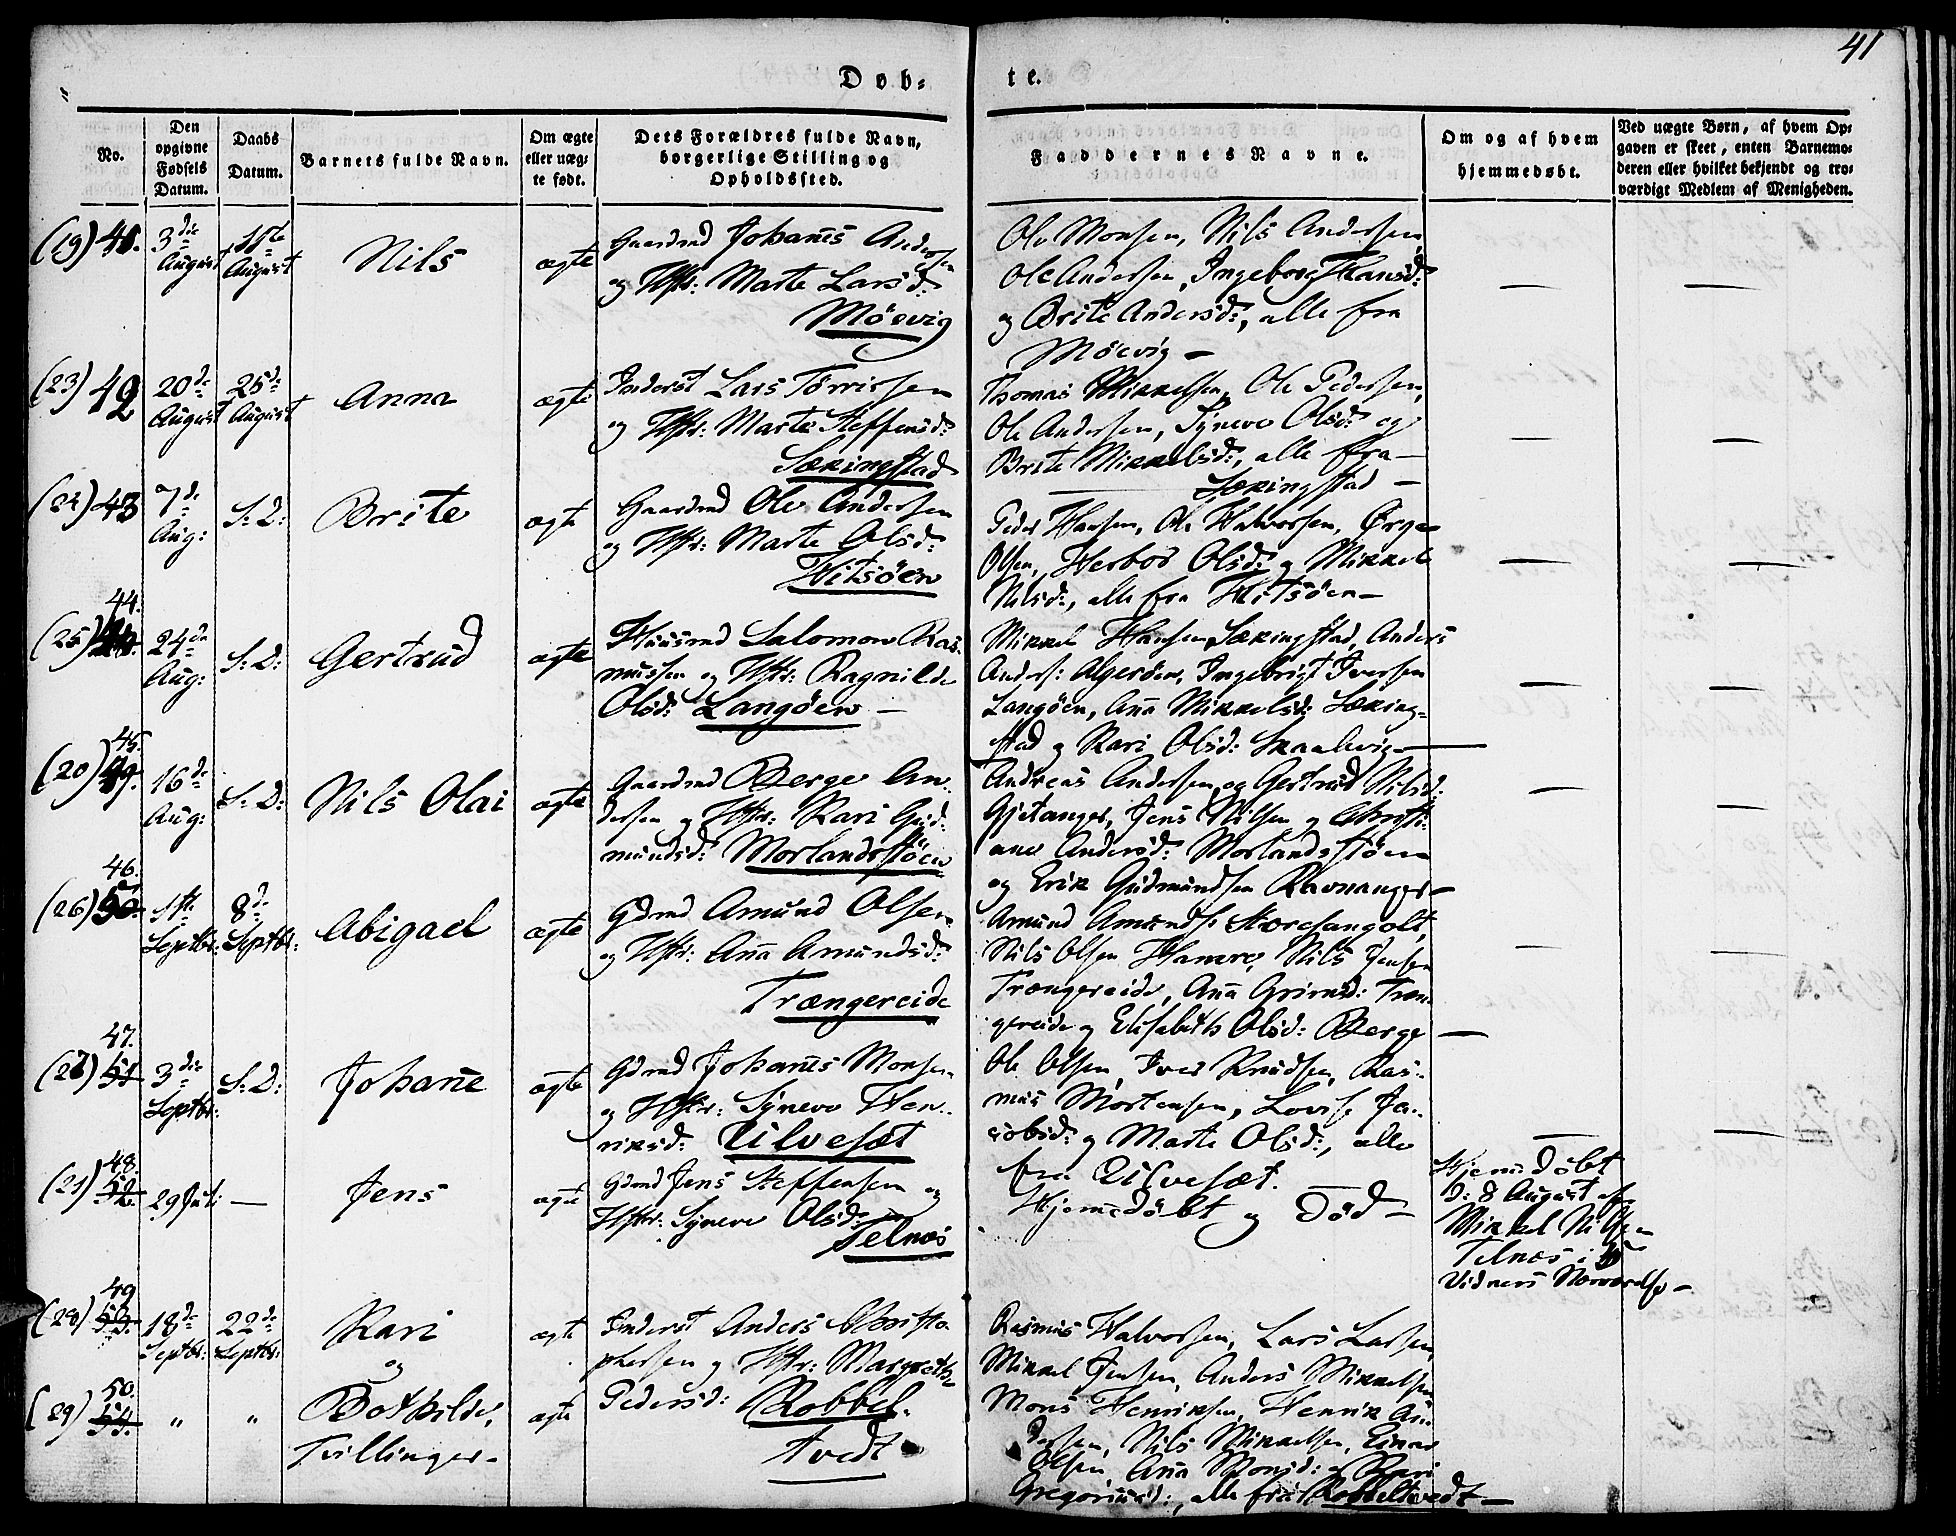 41
Døb-
te.
No.
Den
opgivne
Fødsels
Datum.
Daabs
Datum.
Barnets fulde Navn.
Om ægte
eller uæg-
te født.
Dets Forældres fulde Navn,
borgerlige Stilling og
Opholdssted.
Faddernes Navne.
Om og af hvem
hjemmedøbt.
Ved uægte Børn, af hvem Op-
gaven er skeet, enten Barnemo-
deren eller hvilket bekjendt og tro-
værdigt Medlem af Menigheden.
(19) 41.
3die
August
August
Nils
ægte
Gaardmd Johanes Andersen
og Hstr: Marte Larsd:
Møevig
Ole Monsen, Nils Andersen,
Ole Andersen, Ingeborg Hansd:
og Brite Andersd:, alle fra
Møevig —
—
—
(23) 42
20de
August
25de
August
Anna
ægte
Inderst Lars Tørrissen
og Hstr: Marte Steffensd:
Sækingstad
Thomas Mikkelsen, Ole Pedersen,
Ole Andersen, Syneve Olsd: og
Brite Mikkelsd:, alle fra
Sækingstad —
—
—
(24) 43
7de
Aug:
S: D:
Brite
ægte
Gaardmd Ole Andersen
og Hstr: Marte Olsd:
Hitsøen
Peder Hansen, Ole Halvorsen, Ørge
Olsen, Herbor Olsd: og Mikkele
Nilsd:, alle fra Hitsøen —
—
—
44.
(25)
24de
Aug:
S: D:
Gertrud
ægte
Huusmd Salomon Ras-
mussen og Hstr: Ragnilde
Olsd: Langøen —
Mikkel Hansen Sækingstad, Anders
Anders: Algerøen, Ingebrigt Iversen
Langøen, Ana Mikkelsd: Sæking-
stad og Kari Olsd: Skaalevig —
—
—
45.
(20) 49.
16de
Aug:
S: D:
Nils Olai
ægte
Gaardmd Berge An-
dersen og Hstr: Kari Gud-
mundsd: Morlandsstøen
Andreas Andersen og Gertrud Nilsd:
Gjetanger, Jens Nilsen og Christi-
ane Andersd: Morlandsstøen
og Erik Gudmundsen Ravnanger —
—
—
46.
(26) 50.
1ste
Septbr:
8de
Septbr:
Abigael
ægte
Gdmd Amund Olsen
og Hstr: Ana Amundsd:
Trængereide
Amund Amunds: Storesangolt,
Nils Olsen Hamre, Nils Jensen
Trængereide, Ana Grimsd: Træn-
gereide og Elisabeth Olsd: Berge —
—
—
47.
(27) 51
3die
Septbr:
S: D:
Johane
ægte
Gdmd Johanes Monsen
og Hstr: Syneve Hen-
riksd: Ulvesæt
Ole Olsen, Iver Knudsen, Ras-
mus Mortensen, Lovise Ja-
cobsd: og Marte Olsd:, alle
fra Ulvesæt.
—
—
48.
(21) 52.
29 Juli
—
Jens
ægte
Gdmd Jens Steffensen og
Hstr: Syneve Olsd:
Telnæs
Hjemedøbt og død —
Hjemedøbt
d: 8 August af
Mikkel Nilsen
Telnæs i
Vidners Nærværelse —
49
(28) 53.
18de
Septbr:
22de
Septbr:
Kari
og
ægte
Inderst Anders Christo-
phersen og Hstr: Margrethe
Pedersd: Robbel-
tvedt
Rasmus Halvorsen, Lars Larsen,
Mikkel Jensen, Anders Mikkelsen
50.
(29) 54.
"
"
Bothilde,
Tvillinger —
ægte
Mons Henriksen, Henrik An-
dersen, Nils Mikkelsen, Einar
Olsen, Ana Monsd: og Kari
Gregoriusd:, alle fra Robbeltvedt —